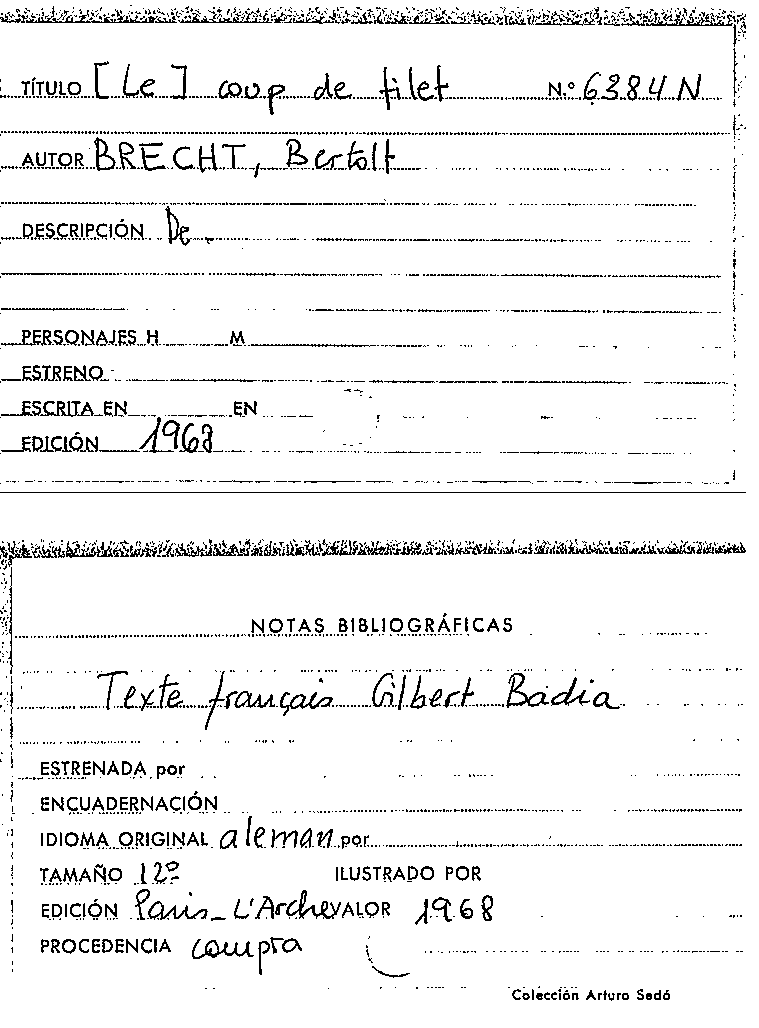 TÍTULO [Le] coup de filet N.º 6384 N
AUTOR BRECHT, Bertolt
DESCRIPCIÓN De.
PERSONAJES H M
ESTRENO
ESCRITA EN EN
EDICIÓN 1968
NOTAS BIBLIOGRÁFICAS
Texte français Gilbert Badia
ESTRENADA por
ENCUADERNACIÓN
IDIOMA ORIGINAL aleman por
TAMAÑO 12º ILUSTRADO POR
EDICIÓN Paris - L'Arche VALOR 1968
PROCEDENCIA compra
Colección Arturo Sedó